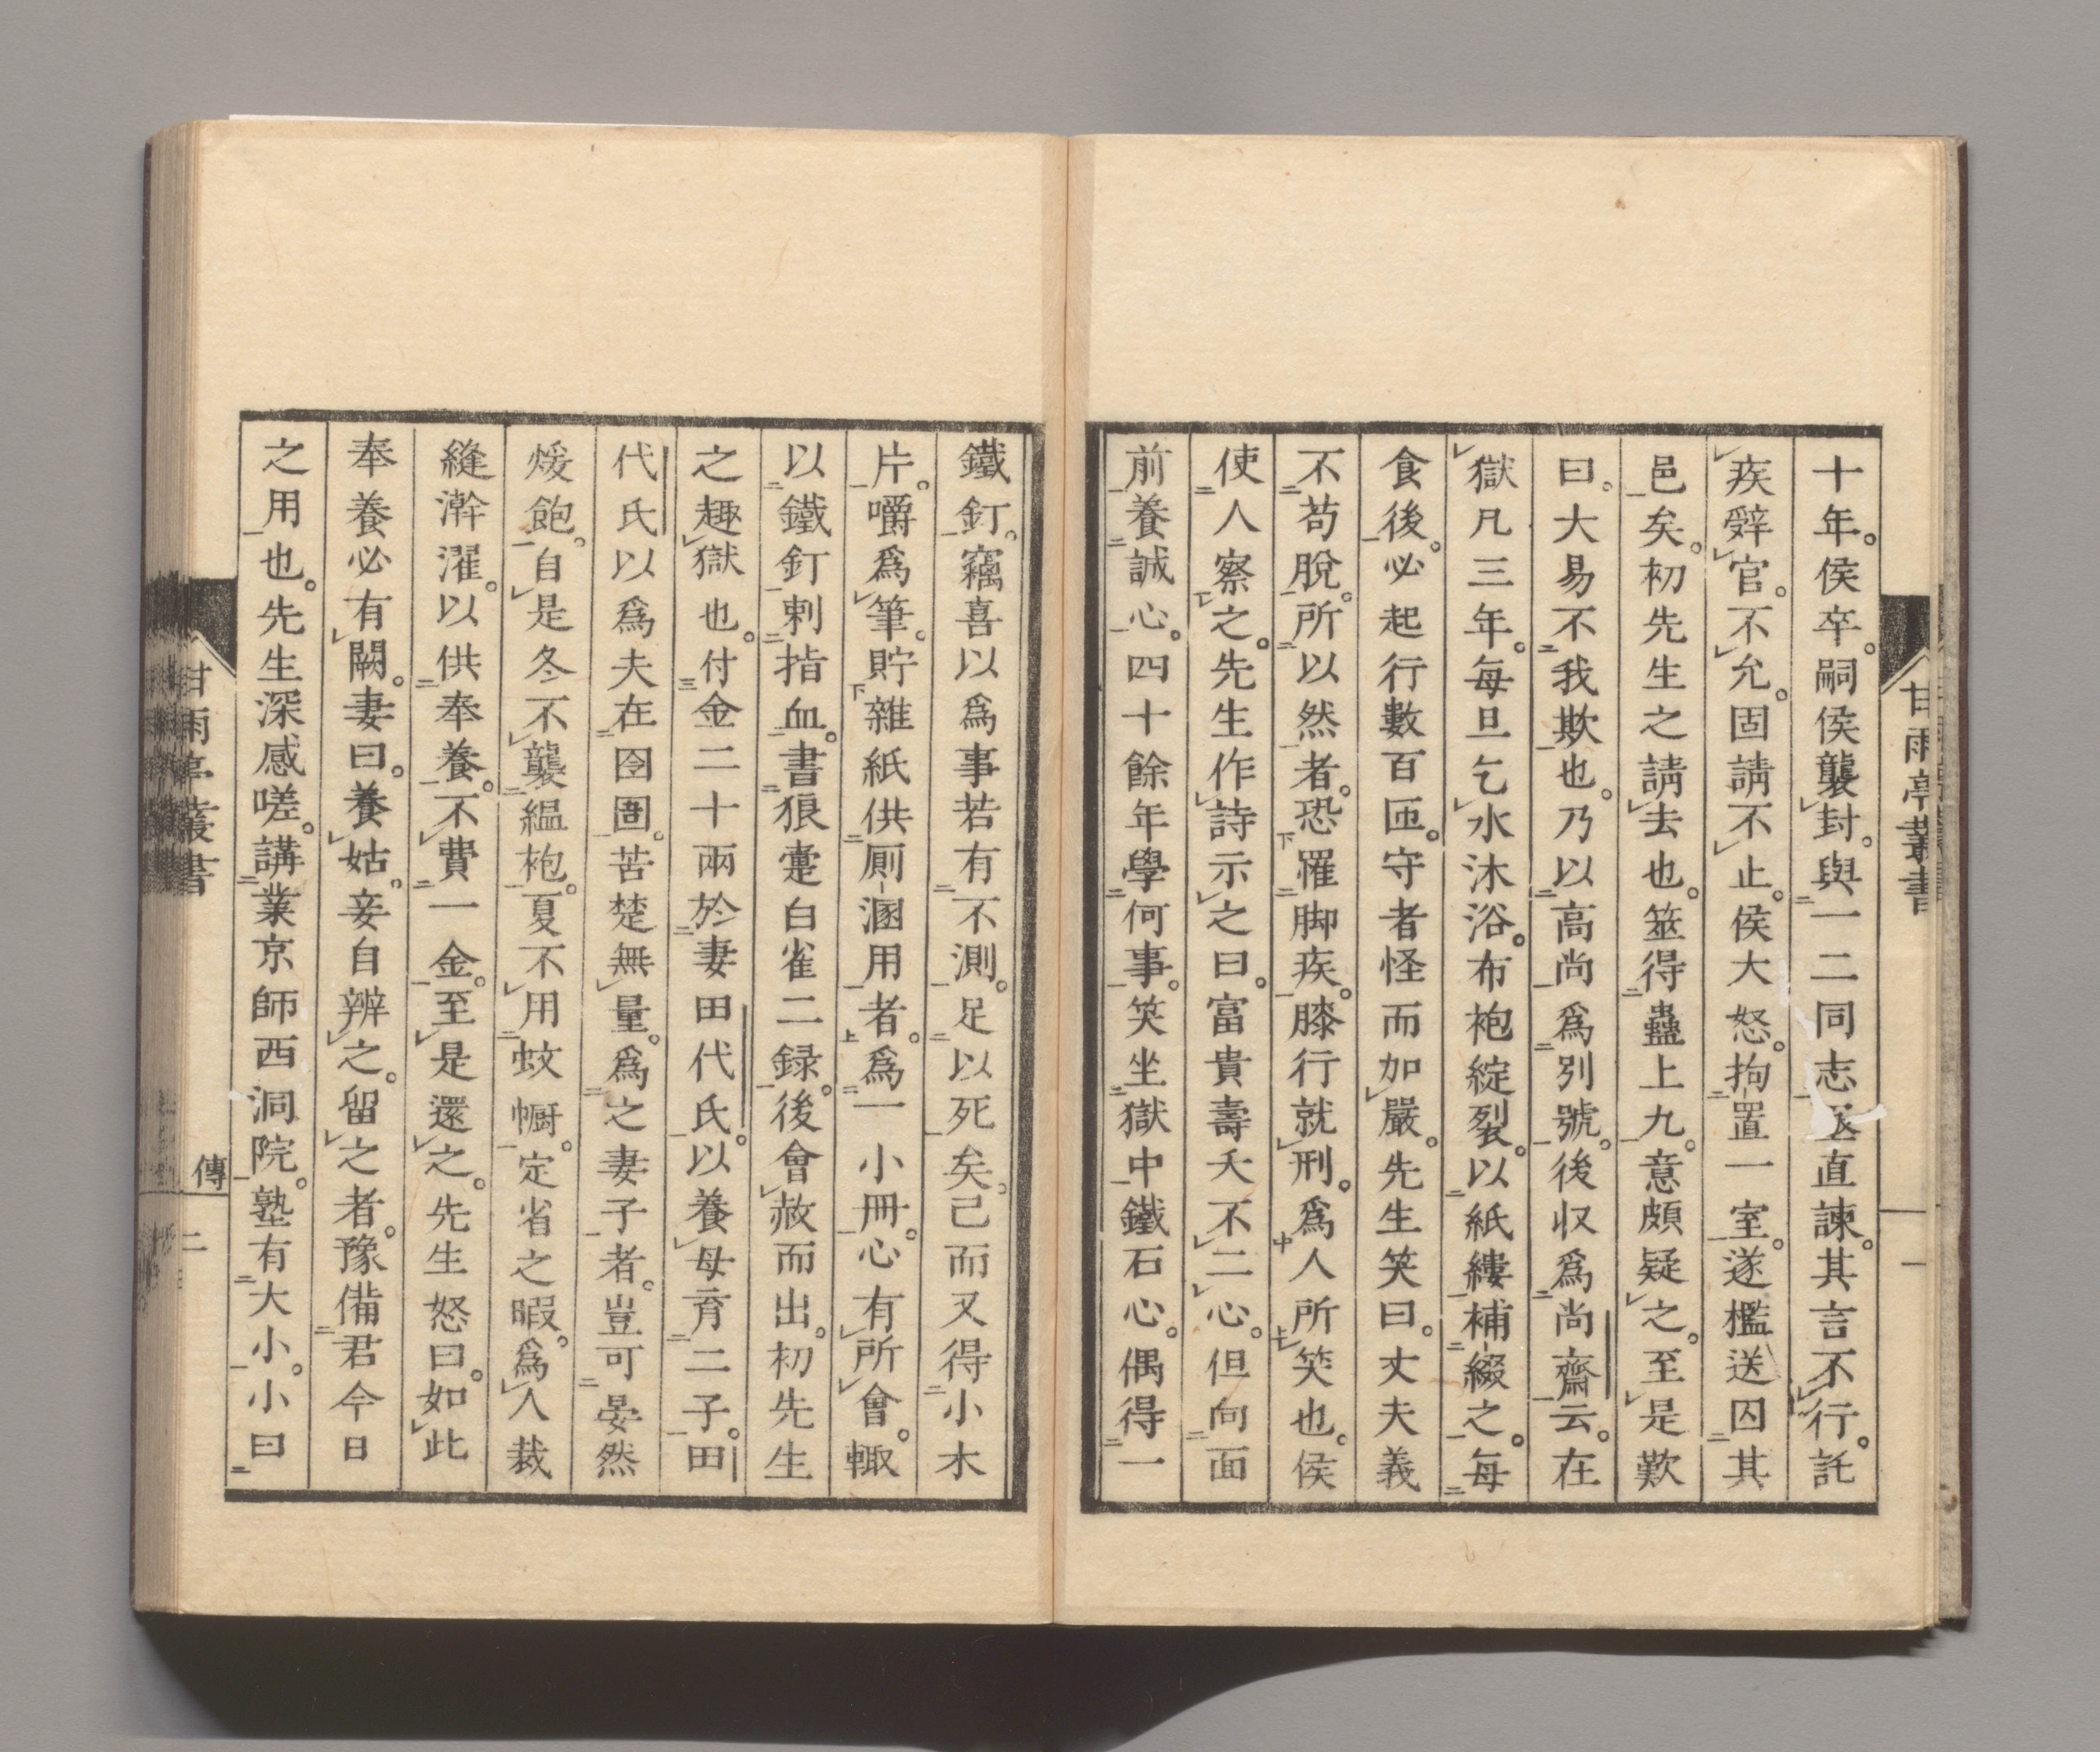 甘雨亭叢書
一
十年。侯卒。嗣侯襲封。與一二同志亟直諫。其言不行。託
疾辭官。不允。固請不止。侯大怒。拘置一室。遂檻送囚其
邑矣。初先生之請去也。筮得蠱上九。意頗疑之。至是歎
曰。大易不我欺也。乃以高尚爲別號。後収爲尚齋云。在
獄凡三年。每旦乞水沐浴。布袍綻裂。以紙縷補綴之。每
食後。必起行數百匝。守者怪而加嚴。先生笑曰。丈夫義
不苟脫。所以然者。恐罹脚疾。膝行就刑。爲人所笑也。侯
使人察之。先生作詩示之曰。富貴壽夭不二心。但向面
前養誠心。四十餘年學何事。笑坐獄中鐵石心。偶得一
鐵釘。竊喜以爲事若有不測。足以死矣。已而又得小木
片。嚼爲筆。貯雜紙供厠溷用者。爲一小冊。心有所會。輙
以鐵釘刺指血。書狼疐白雀二録。後會赦而出。初先生
之趣獄也。付金二十兩於妻田代氏。以養母育二子。田
代氏以爲夫在囹圄。苦楚無量。爲之妻子者。豈可晏然
煖飽。自是冬不襲縕袍。夏不用蚊幮。定省之暇。爲人裁
縫澣濯。以供奉養。不費一金。至是還之。先生怒曰。如此
奉養必有闕。妻曰。養姑。妾自辨之。留之者。豫備君今日
之用也。先生深感嗟。講業京師西洞院。塾有大小。小曰
甘雨亭叢書
傳
二